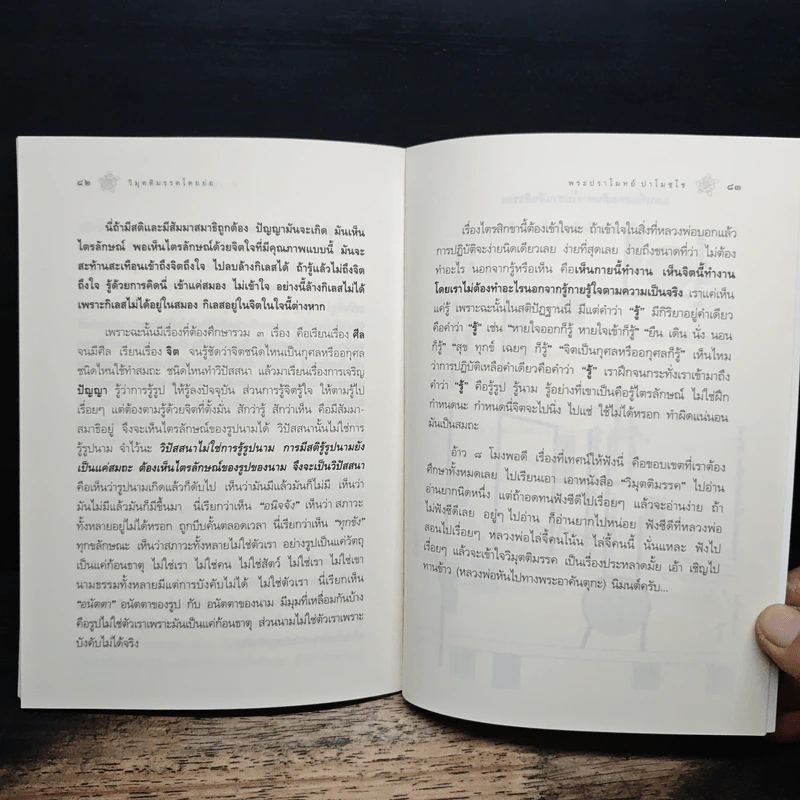 ๘๒ วิมุตติมรรคโดยย่อ
นี่ถ้ามีสติและมีสัมมาสมาธิถูกต้อง ปัญญามันจะเกิด มันเห็น
ไตรลักษณ์ พอเห็นไตรลักษณ์ด้วยจิตใจที่มีคุณภาพแบบนี้ มันจะ
สะท้านสะเทือนเข้าถึงจิตถึงใจ ไปลบล้างกิเลสได้ ถ้ารู้แล้วไม่ถึงจิต
ถึงใจ รู้ด้วยการคิดนี่ เข้าแค่สมอง ไม่เข้าใจ อย่างนี้ล้างกิเลสไม่ได้
เพราะกิเลสไม่ได้อยู่ในสมอง กิเลสอยู่ในจิตในใจนี้ต่างหาก
เพราะฉะนั้นมีเรื่องที่ต้องศึกษารวม ๓ เรื่อง คือเรียนเรื่อง ศีล
จนมีศีล เรียนเรื่อง จิต จนรู้ชัดว่าจิตชนิดไหนเป็นกุศลหรืออกุศล
ชนิดไหนใช้ทำสมถะ ชนิดไหนทำวิปัสสนา แล้วมาเรียนเรื่องการเจริญ
ปัญญา รู้ว่าการรู้รูป ให้รู้ลงปัจจุบัน ส่วนการรู้จิตรู้ใจ ให้ตามรู้ไป
เรื่อยๆ แต่ต้องตามรู้ด้วยจิตที่ตั้งมั่น สักว่ารู้ สักว่าเห็น คือมีสัมมา-
สมาธิอยู่ จึงจะเห็นไตรลักษณ์ของรูปนามได้ วิปัสสนานั้นไม่ใช่การ
รู้รูปนาม จำไว้นะ วิปัสสนาไม่ใช่การรู้รูปนาม การมีสติรู้รูปนามยัง
เป็นแค่สมถะ ต้องเห็นไตรลักษณ์ของรูปของนาม จึงจะเป็นวิปัสสนา
คือเห็นว่ารูปนามเกิดแล้วก็ดับไป เห็นว่ามันมีแล้วมันก็ไม่มี เห็นว่า
มันไม่มีแล้วมันก็มีขึ้นมา นี่เรียกว่าเห็น “อนิจจัง” เห็นว่า สภาวะ
ทั้งหลายอยู่ไม่ได้หรอก ถูกบีบคั้นตลอดเวลา นี่เรียกว่าเห็น “ทุกขัง”
ทุกขลักษณะ เห็นว่าสภาวะทั้งหลายไม่ใช่ตัวเรา อย่างรูปเป็นแค่วัตถุ
เป็นแค่ก้อนธาตุ ไม่ใช่เรา ไม่ใช่คน ไม่ใช่สัตว์ ไม่ใช่เรา ไม่ใช่เขา
นามธรรมทั้งหลายมีแต่การบังคับไม่ได้ ไม่ใช่ตัวเรา นี่เรียกเห็น
“อนัตตา” อนัตตาของรูป กับ อนัตตาของนาม มีมุมที่เหลื่อมกันบ้าง
คือรูปไม่ใช่ตัวเราเพราะมันเป็นแค่ก้อนธาตุ ส่วนนามไม่ใช่ตัวเราเพราะ
บังคับไม่ได้จริง
พระปราโมทย์ ปาโมชฺโช ๘๓
เรื่องไตรสิกขานี้ต้องเข้าใจนะ ถ้าเข้าใจในสิ่งที่หลวงพ่อบอกแล้ว
การปฏิบัติจะง่ายนิดเดียวเลย ง่ายที่สุดเลย ง่ายถึงขนาดที่ว่า ไม่ต้อง
ทำอะไร นอกจากรู้หรือเห็น คือเห็นกายนี้ทำงาน เห็นจิตนี้ทำงาน
โดยเราไม่ต้องทำอะไรนอกจากรู้กายรู้ใจตามความเป็นจริง เราแค่เห็น
แค่รู้ เพราะฉะนั้นในสติปัฏฐานนี้ มีแต่คำว่า “รู้” มีกิริยาอยู่คำเดียว
คือคำว่า “รู้” เช่น “หายใจออกก็รู้ หายใจเข้าก็รู้” “ยืน เดิน นั่ง นอน
ก็รู้” “สุข ทุกข์ เฉยๆ ก็รู้” “จิตเป็นกุศลหรืออกุศลก็รู้” เห็นไหม
ว่าการปฏิบัติเหลือคำเดียวคือคำว่า “รู้” เราฝึกจนกระทั่งเราเข้ามาถึง
คำว่า “รู้” คือรู้รูป รู้นาม รู้อย่างที่เขาเป็นคือรู้ไตรลักษณ์ ไม่ใช่ฝึก
กำหนดนะ กำหนดนี่จิตจะไปนิ่ง ไปแช่ ใช้ไม่ได้หรอก ทำผิดแน่นอน
มันเป็นสมถะ
อ้าว ๘ โมงพอดี เรื่องที่เทศน์ให้ฟังนี่ คือขอบเขตที่เราต้อง
ศึกษาทั้งหมดเลย ไปเรียนเอา เอาหนังสือ “วิมุตติมรรค” ไปอ่าน
อ่านยากนิดหนึ่ง แต่ถ้าอดทนฟังซีดีไปเรื่อยๆ แล้วจะอ่านง่าย ถ้า
ไม่ฟังซีดีเลย อยู่ๆ ไปอ่าน ก็อ่านยากไปหน่อย ฟังซีดีที่หลวงพ่อ
สอนไปเรื่อยๆ หลวงพ่อไล่จี้คนโน้น ไล่จี้คนนี้ นั่นแหละ ฟังไป
เรื่อยๆ แล้วจะเข้าใจวิมุตติมรรค เป็นเรื่องประหลาดมั้ย เอ้า เชิญไป
ทานข้าว (หลวงพ่อหันไปทางพระอาคันตุกะ) นิมนต์ครับ...